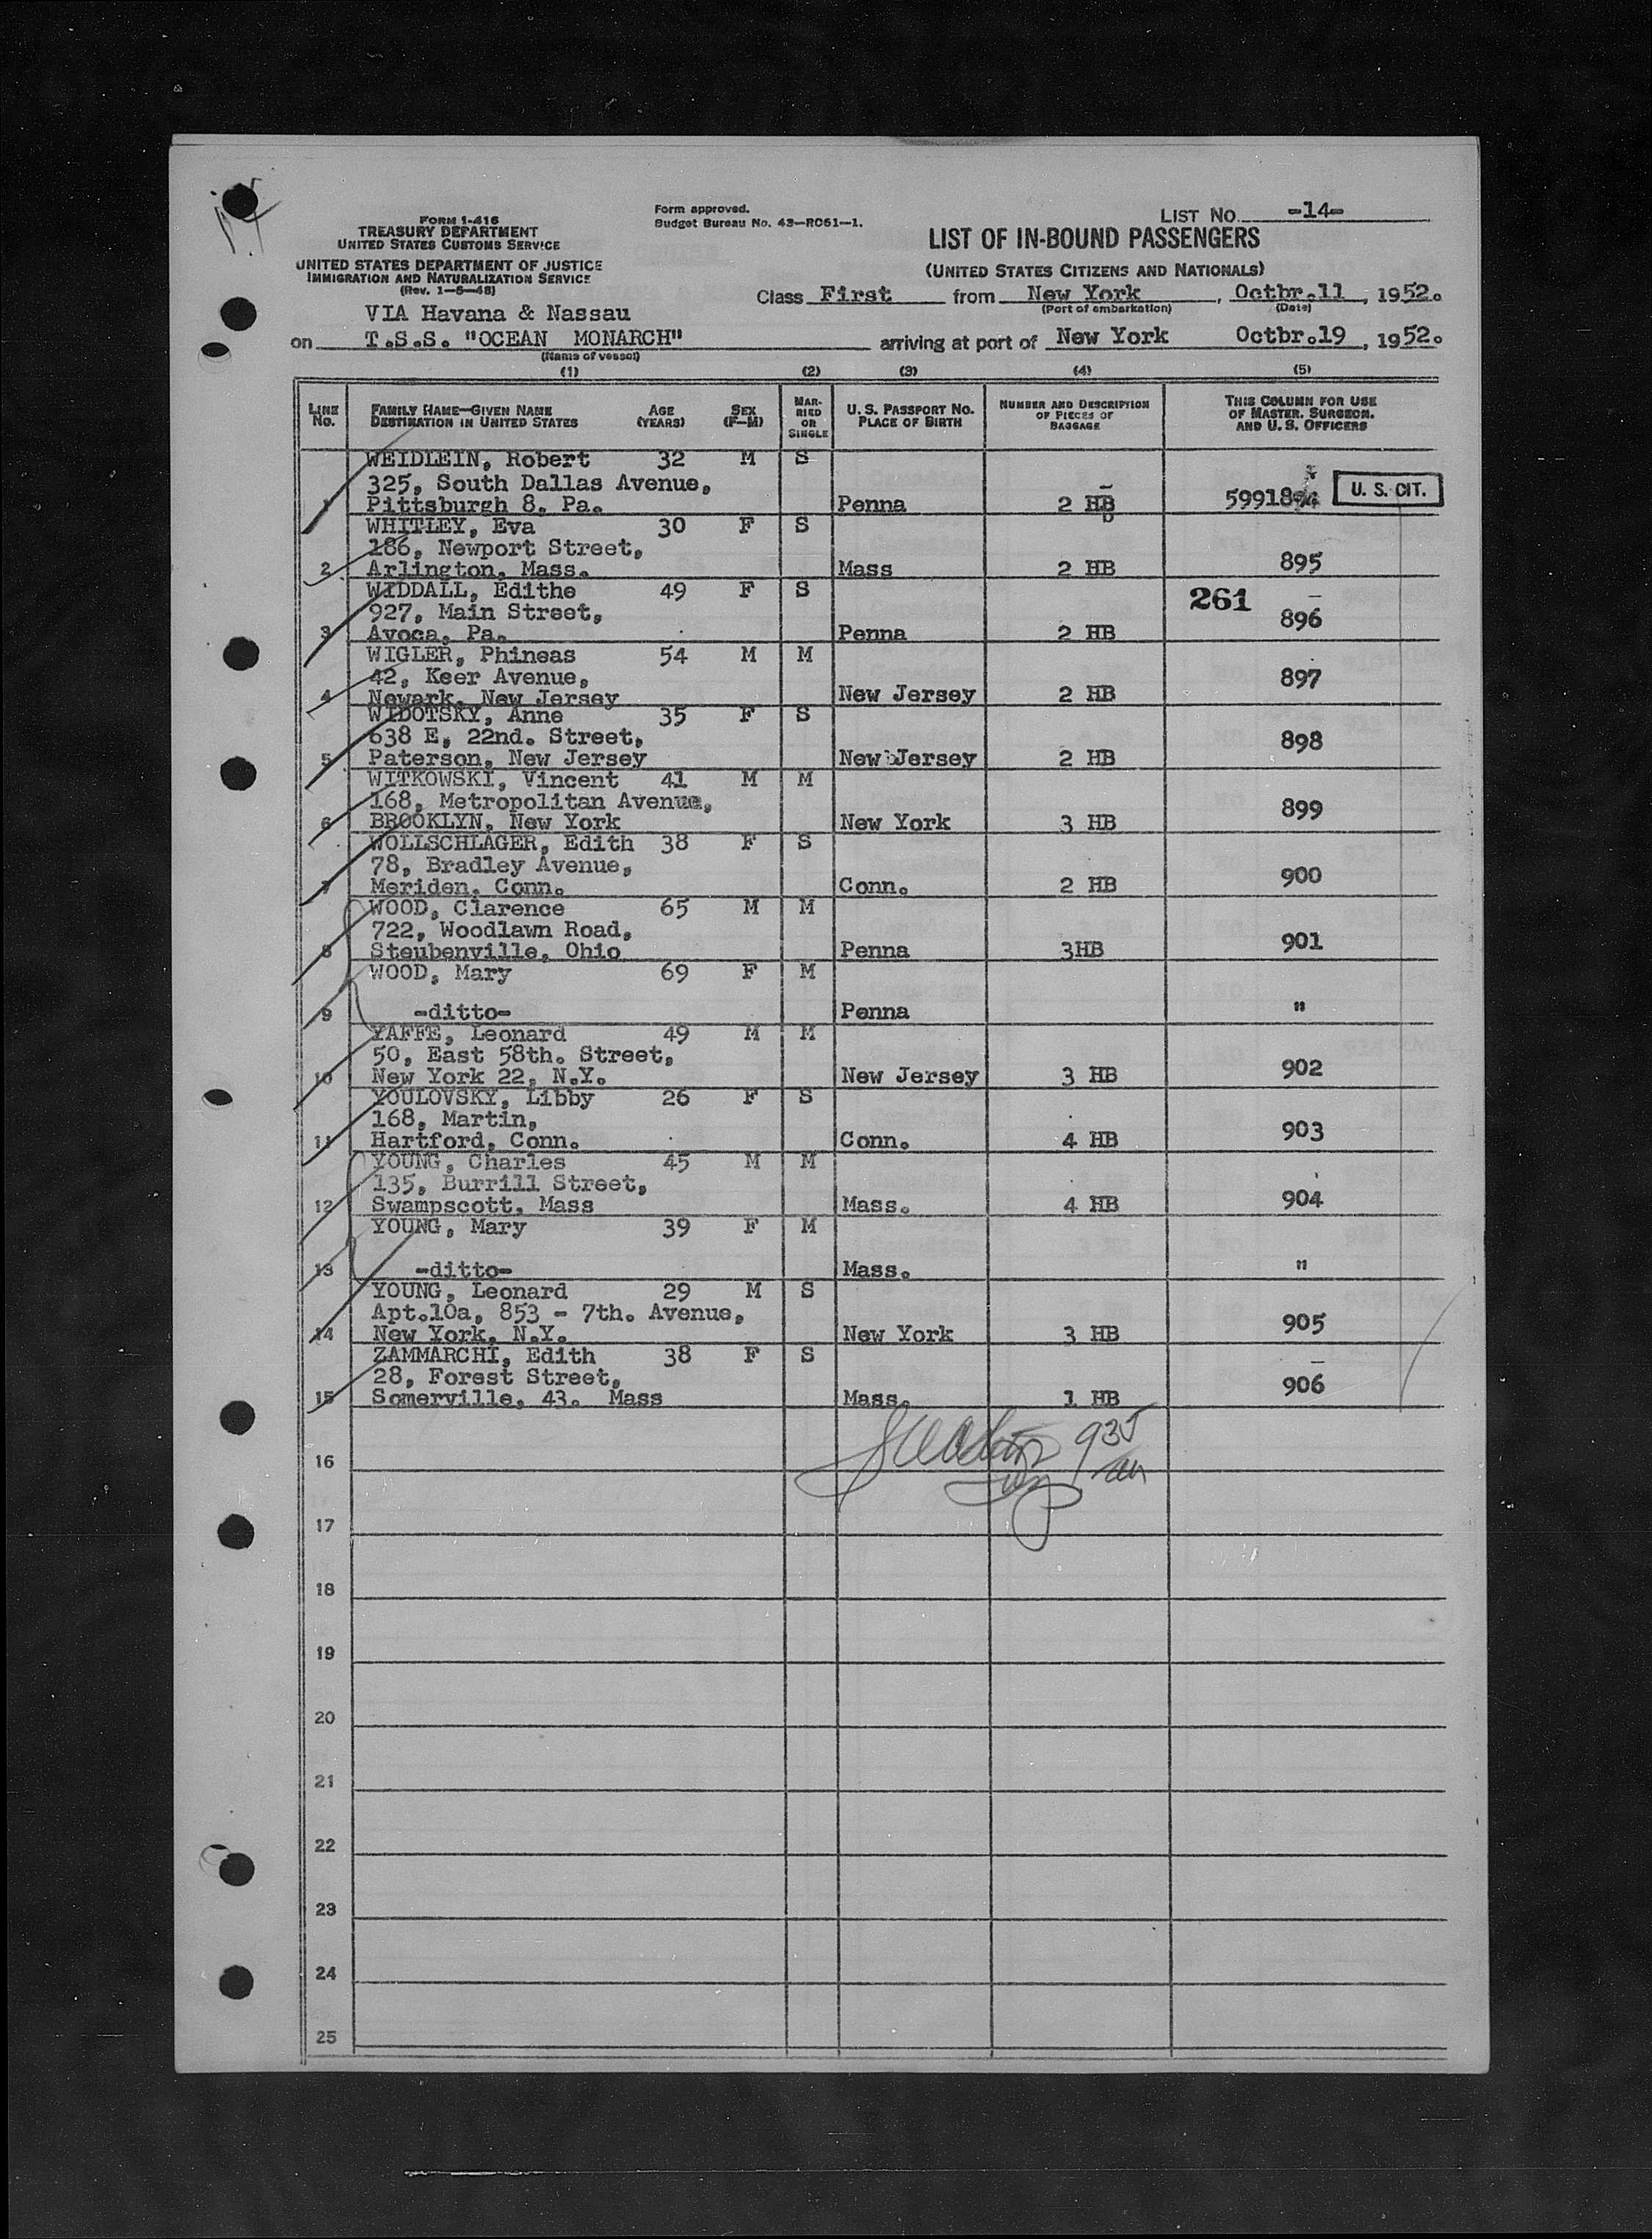 14
FORM I-416
TREASURY DEPARTMENT
UNITED STATES CUSTOMS SERVICE
UNITED STATES DEPARTMENT OF JUSTICE
IMMIGRATION AND NATURALIZATION SERVICE
(Rev. 1-5-48)
Form approved.
Budget Bureau No. 43-R061-1.
LIST NO. -14-
LIST OF IN-BOUND PASSENGERS
(UNITED STATES CITIZENS AND NATIONALS)
Class First from New York, Octbr.11, 1952.
(Port of embarkation) (Date)
VIA Havana & Nassau
on T.S.S. "OCEAN MONARCH" arriving at port of New York Octbr.19, 1952.
(Name of vessel)
(1) (2) (3) (4) (5)
LINE No. FAMILY NAME—GIVEN NAME DESTINATION IN UNITED STATES AGE (YEARS) SEX (F-M) MARRIED OR SINGLE U. S. PASSPORT NO. PLACE OF BIRTH NUMBER AND DESCRIPTION OF PIECES OF BAGGAGE THIS COLUMN FOR USE OF MASTER, SURGEON, AND U. S. OFFICERS
WEIDLEIN, Robert 32 M S
325, South Dallas Avenue,
1 Pittsburgh 8, Pa. Penna 2 HB 5991894 U. S. CIT.
WHITLEY, Eva 30 F S
186, Newport Street,
2 Arlington, Mass. Mass 2 HB 895
WIDDALL, Edithe 49 F S 261
927, Main Street, 896
3 Avoca, Pa. Penna 2 HB
WIGLER, Phineas 54 M M
42, Keer Avenue, 897
4 Newark, New Jersey New Jersey 2 HB
WIDOTSKY, Anne 35 F S
638 E, 22nd. Street, 898
5 Paterson, New Jersey New Jersey 2 HB
WITKOWSKI, Vincent 41 M M
168, Metropolitan Avenue, 899
6 BROOKLYN, New York New York 3 HB
WOLLSCHLAGER, Edith 38 F S
78, Bradley Avenue,
7 Meriden, Conn. Conn. 2 HB 900
WOOD, Clarence 65 M M
722, Woodlawn Road,
8 Steubenville, Ohio Penna 3HB 901
WOOD, Mary 69 F M
9 -ditto- Penna "
YAFFE, Leonard 49 M M
50, East 58th. Street,
10 New York 22, N.Y. New Jersey 3 HB 902
YOULOVSKY, Libby 26 F S
168, Martin,
11 Hartford, Conn. Conn. 4 HB 903
YOUNG, Charles 45 M M
135, Burrill Street,
12 Swampscott, Mass Mass. 4 HB 904
YOUNG, Mary 39 F M
13 -ditto- Mass. "
YOUNG, Leonard 29 M S
Apt.10a, 853 - 7th. Avenue,
14 New York, N.Y. New York 3 HB 905
ZAMMARCHI, Edith 38 F S
28, Forest Street,
15 Somerville, 43. Mass Mass. 1 HB 906
935
16
17
18
19
20
21
22
23
24
25